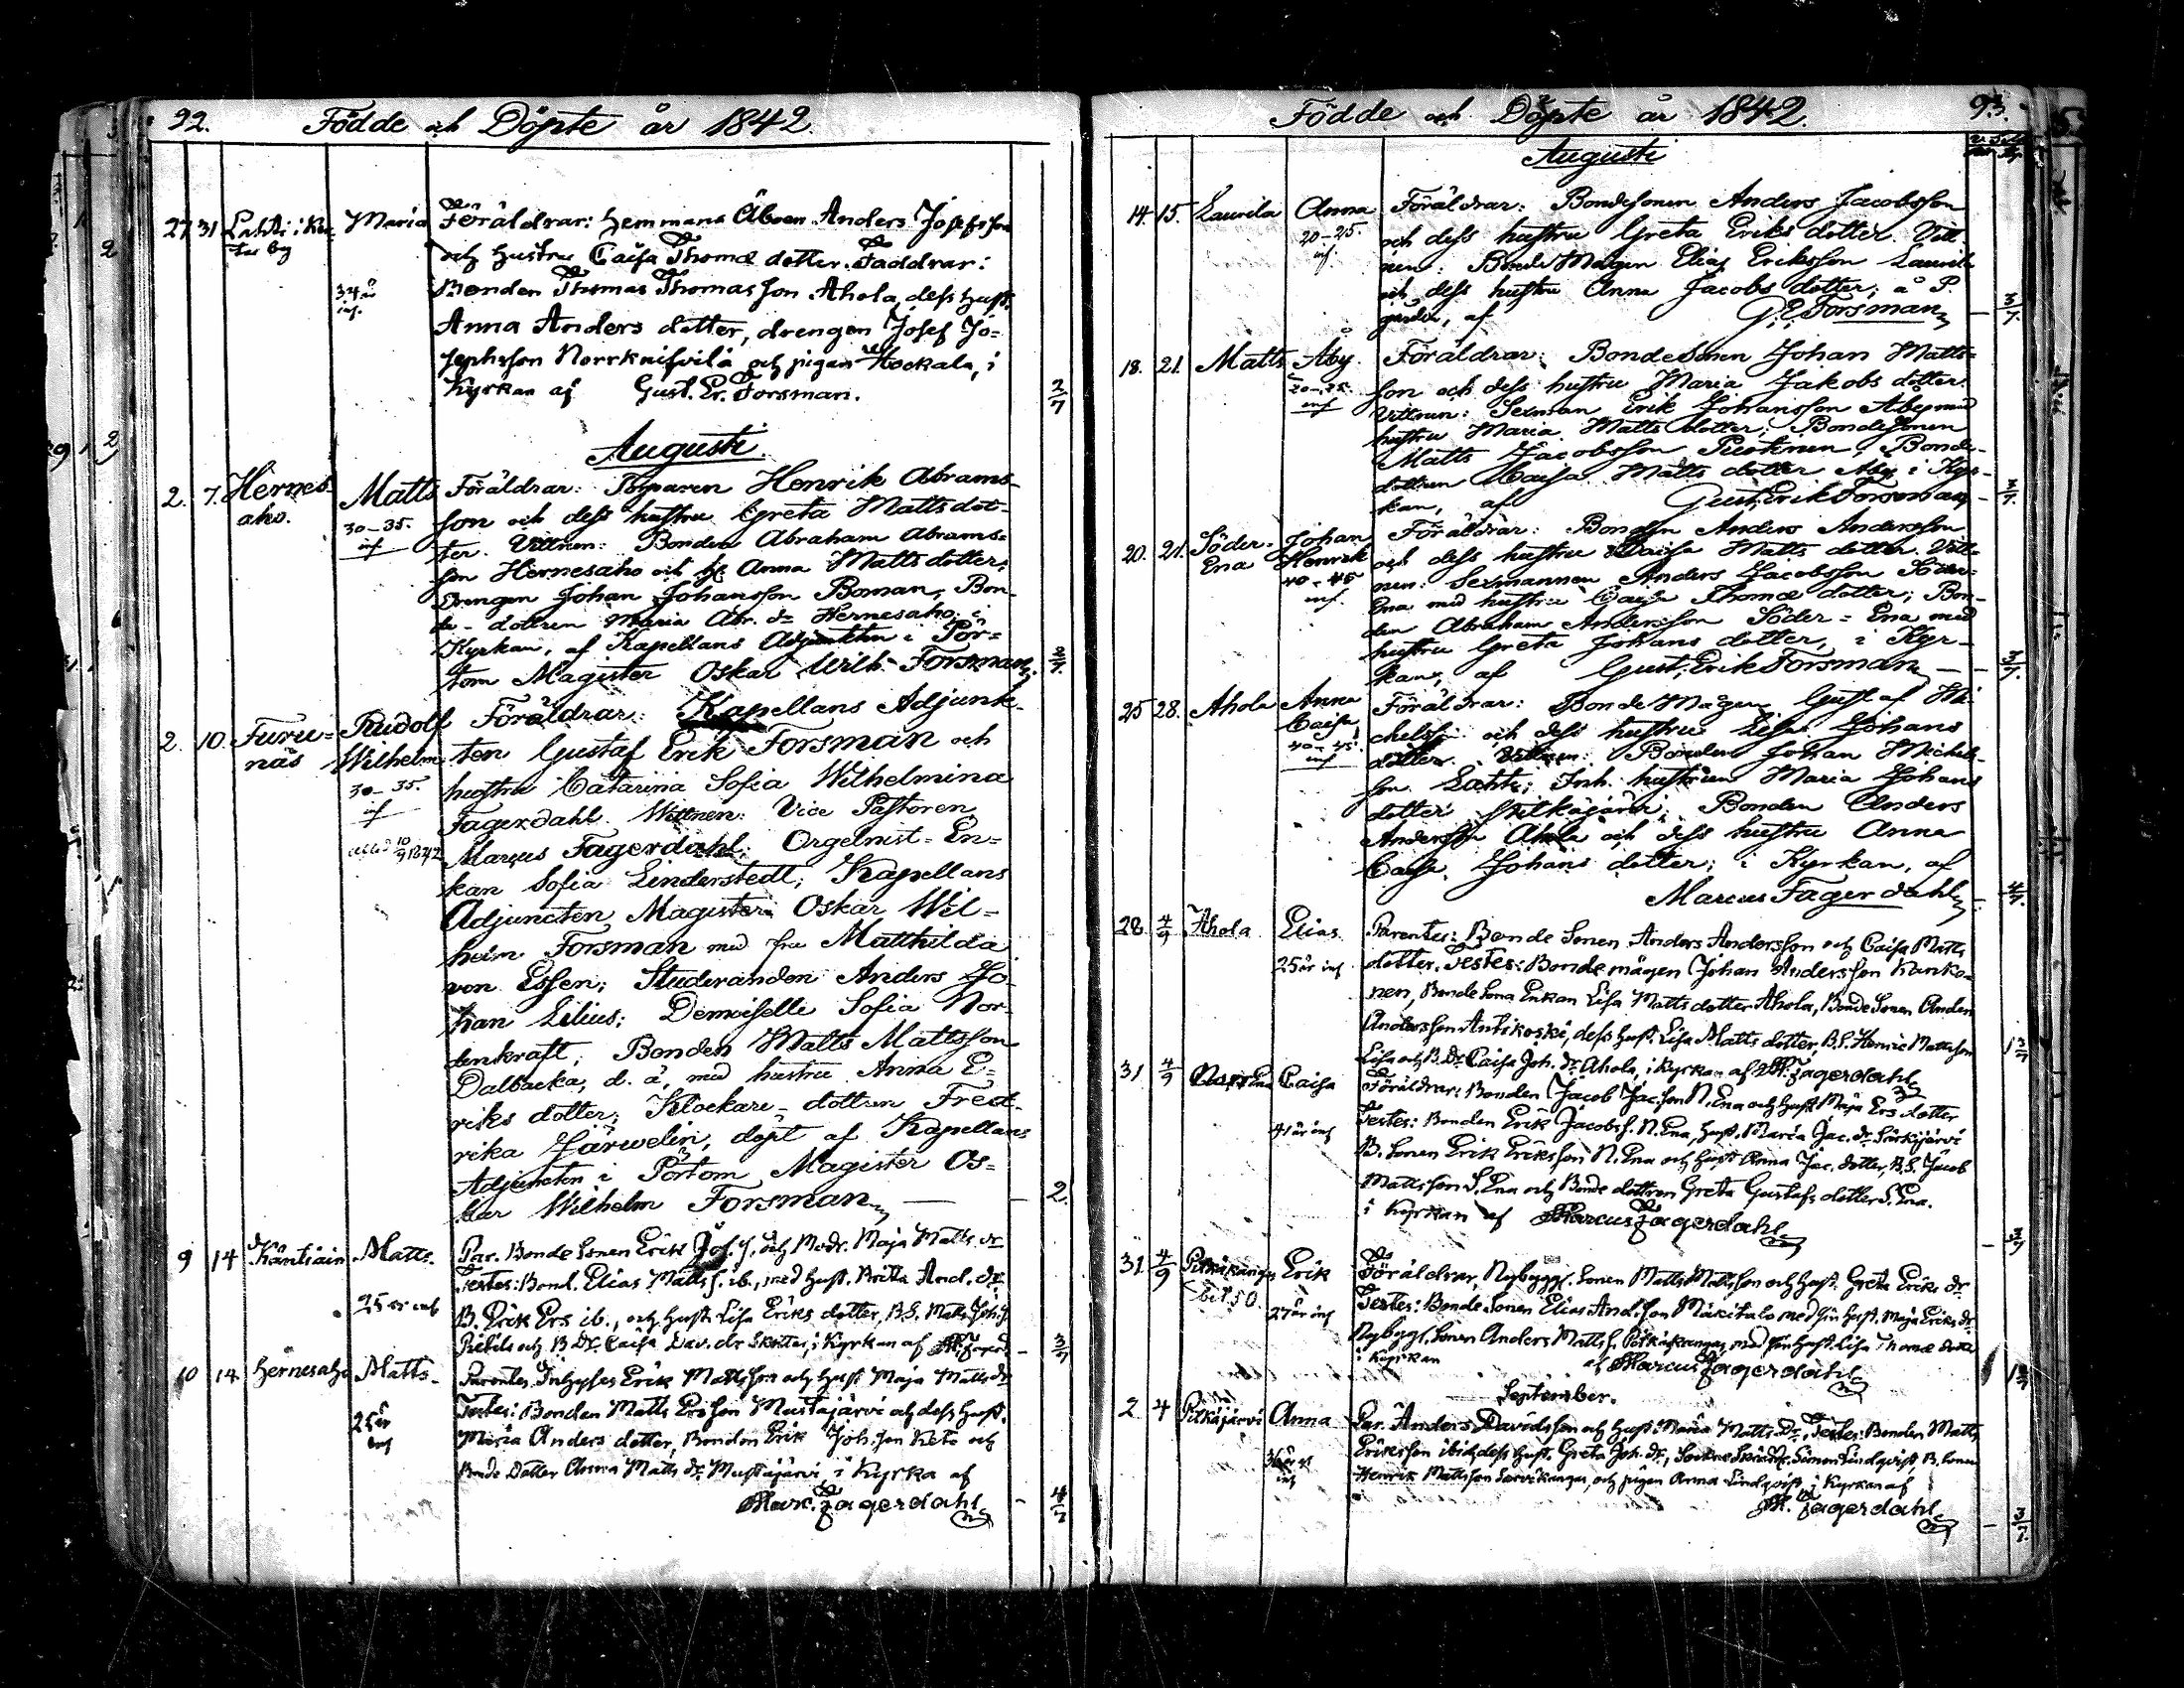 92. Födde och Döpte år 1842.
27 31 Lahti i Ku- Maria Föräldrar: Hemmans Åboen Anders Josefsson
by och hustru Caisa Thomæ dotter. Faddrar:
34 år Bonden Thomas Thomasson Ahola, dess hust.
inf. Anna Anders dotter, drengen Josef Jo-
sephsson Norrknifvilä och pigan Hockala, i
Kyrkan af Gust. Er. Forsman. 2/7
Augusti.
2. 7. Hernes- Matts Föräldrar: Torparen Henrik Abrams-
aho. 30-35. son och dess hustru Greta Mattsdot-
inf ter. Vittnen: Bonden Abraham Abrams-
son Hernesaho och h. Anna Matts dotter;
Drengen Johan Johansson Boman, Bon-
de-dottren Maria Abr. dr Hernesaho; i
Kyrkan, af Kapellans Adjunkten i Pör-
tom Magister Oskar Wilh. Forsman 3/7.
2. 10. Furu- Rudolf Föräldrar: Kapellans Adjunk-
näs Wilhelm ten Gustaf Erik Forsman och
30-35. hustru Catarina Sofia Wilhelmina
inf Fagerdahl. Wittnen: Vice Pastoren
10/9 1842 Marcus Fagerdahl; Orgelnist-En-
kan Sofia Linderstedt; Kapellans
Adjuncten Magister Oskar Wil-
helm Forsman med fru Matthilda
von Essen; Studeranden Anders Jo-
han Lilius; Demoiselle Sofia Nor-
denkraft; Bonden Matts Mattsson
Dalbacka, d. ä, med hustru Anna E-
riks dotter; Klockare-dottren Fred-
rika Järwelin, döpt af Kapellans
Adjuncten i Pörtom Magister Os-
kar Wilhelm Forsman 2.
9 14 Käntiäin Matts. Par. Bonde Sonen Erik Jos. s. och Modr. Maja Matts dr
Testes: Bond. Elias Matts s. ib., med hust. Brita And. dr.
25 år inf B. Erik Ers ib., och hust. Lisa Eriks dotter, B.S. Matts Joh. s.
och B. Dr. Caisa Dav. dr i Kyrkan af M. Fagerd. 3/7
10 14. Hernesaho Matts. Parentes Inhyses Erik Mattsson och hust Maja Matts dr
25 år Testes: Bonden Matts Ersson Mustajärvi och dess hust.
inf Maria Anders dotter, Bonden Erik Joh. son Keto och
Bonde Dotter Anna Matts dr. Mustajärvi, i Kyrka af
Marc. Fagerdahl 4/7
Födde och Döpte år 1842. 93.
Augusti
14. 15. Laurila Anna Föräldrar: Bondesonen Anders Jacobsson
20-25. och dess hustru Greta Eriks dotter. Vitt-
inf. nen: Bonde Mågen Elias Eriksson Laurila
och dess hustru Anna Jacobs dotter; å P.
gården, af G: E. Forsman 3/7.
18. 21. Matts Åby. Föräldrar: Bondesonen Johan Matts-
20-25. son och dess hustru Maria Jakobs dotter.
inf Vittnen: Sexman Erik Johansson Åby med
hustru Maria Matts dotter; Bondesonen
Matts Jacobsson Puskinen, Bonde-
dottren Caisa Matts dotter Åby, i Kyr-
kan, af Gust. Erik Forsman 3/7.
20. 21. Söder- Johan Föräldrar: Bonden Anders Andersson
Ena Henrik och dess hustru Caisa Matts dotter. Vitt-
40-45 nen: Sexmannen Anders Jacobsson Söder-
inf. Ena med hustru Caisa Thomæ dotter; Bon-
den Abraham Andersson Söder-Ena med
hustru Greta Johans dotter, i Kyr-
kan, af Gust. Erik Forsman 3/7.
25 28. Ahola Anna Föräldrar: Bonde Mågen Gustaf Mi-
Caisa chelss: och dess hustru Lisa Johans
40-45 dotter. Vittnen: Bonden Johan Michels-
inf son Lahti; Inh. hustrun Maria Johans
dotter Pitkäjärvi; Bonden Anders
Andersson Ahola och dess hustru Anna
Caisa Johans dotter; i Kyrkan, af
Marcus Fagerdahl 4/7.
28 4/9 Ahola Elias Parentes: Bonde Sonen Anders Andersson och Caisa Matts
25 år inf dotter. Testes: Bonde mågen Johan Andersson Kanko-
nen, Bonde Sona Enkan Lisa Matts dotter Ahola, Bonde Sonen Anders
Andersson Antikoski, dess hust. Lisa Matts dotter, B.S. Henric Mattsson
Lisa och B. Dr. Caisa Joh. dr. Ahola, i Kyrkan af M. Fagerdahl 1 3/7
31 4/9 Norr Ena Caisa Föräldrar: Bonden Jacob Jac. son N. Ena och hust Maja Ers dotter
41 år inf Testes: Bonden Erik Jacobs s. N. Ena, hust. Maria Jac. dr. Särkijärvi
B. Sonen Erik Eriksson N. Ena och hust Anna Jac. dotter, B.S. Jacob
Mattsson S. Ena och Bonde dottren Greta Gustafs dotter S. Ena.
i Kyrkan af Marcus Fagerdahl 3/7
31 4/9 Pitkäkangas Erik Föräldrar, Nybyggs. Sonen Matts Mattsson och hust. Greta Eriks dr
27 år inf Testes: Bonde Sonen Elias And. son Mäkitalo med sin hust. Maja Eriks dr.
Nybygg. Sonen Anders Matts s. Pitkäkangas, med sin hust. Lisa Thomæ dotter
i Kyrkan af Marcus Fagerdahl 1 3/7
September.
2 4 Pitkäjärvi Anna Par. Anders Davidsson och hust: Maria Matts Dr. Testes: Bonden Matts
36 år Eriksson ibid, dess hust. Greta Joh. dr., Sockne Skräddr. Simon Lindqvist B. Sonen
inf Henrik Mattsson Sarvikangas, och pigan Anna Lindqvist, i Kyrkan af
M. Fagerdahl 3/7.